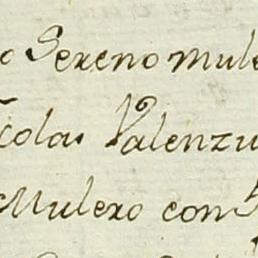 o Sereno mule
colas Valenzu
Mulero con 5